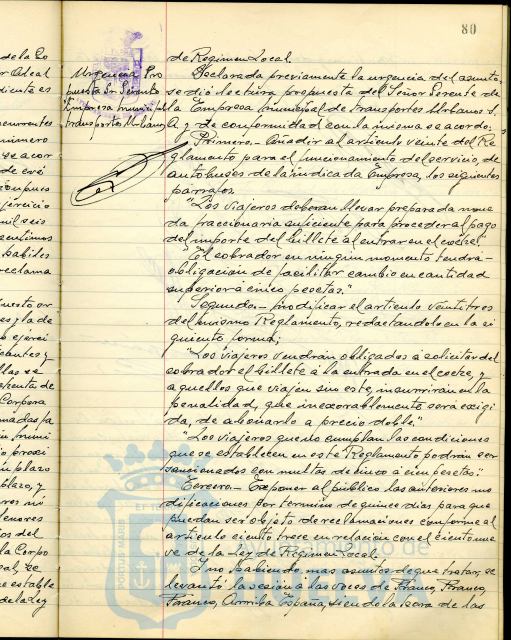 80
de la Co
r Alcal
diente es
ncurrentes
número
se acor
de exi
ejercicio
mil seis
reclama
y la de
ejerci
llas se
Corpora
plazo
blazo, y
ores del
la Corpo
e estable
de la Ley
Urgencia Pro
puesta Sr Gerente
Empresa municipal
transportes Urbanos
de Regimen Local.
Declarada previamente la urgencia del asunto,
se dió lectura propuesta del Señor Gerente de
la Empresa Municipal de Transportes Urbanos S.
A. y de conformidad con la misma se acordo:
Primero.- Añadir al articulo veinte del Re
glamento para el funcionamiento del servicio, de
autobuses de la indicada Empresa, los siguientes
parrafos.
"Los viajeros deberan llevar preparada mone
da fraccionaria suficiente para proceder al pago
del importe del billete al entrar en el coche.
"El cobrador en ningún momento tendrá
obligación de facilitar cambio en cantidad
superior a cinco pesetas."
Segundo.- Modificar el articulo veintitres
del mismo Reglamento, redactandolo en la si
guiente forma;
"Los viajeros vendrán obligados a solicitar del
cobrador el billete á la entrada en el coche, y
aquellos que viajen sin este, incurrirán en la
penalidad, que inexorablemente será exigi
da, de abonarlo a precio doble."
"Los viajeros que no cumplan las condiciones
que se establecen en este Reglamento podrán ser
sancionados con multas de cinco á cien pesetas."
Tercero.- Exponer al público las anteriores mo
dificaciones por termino de quince dias para que
puedan ser objeto de reclamaciones conforme al
articulo ciento trece en relación con el ciento nue
ve de la Ley de Regimen Local.
Y no habiendo mas asuntos de que tratar, se
levantó la sesión á las voces de Franco, Franco,
Franco, Arriba España, siendo la hora de las